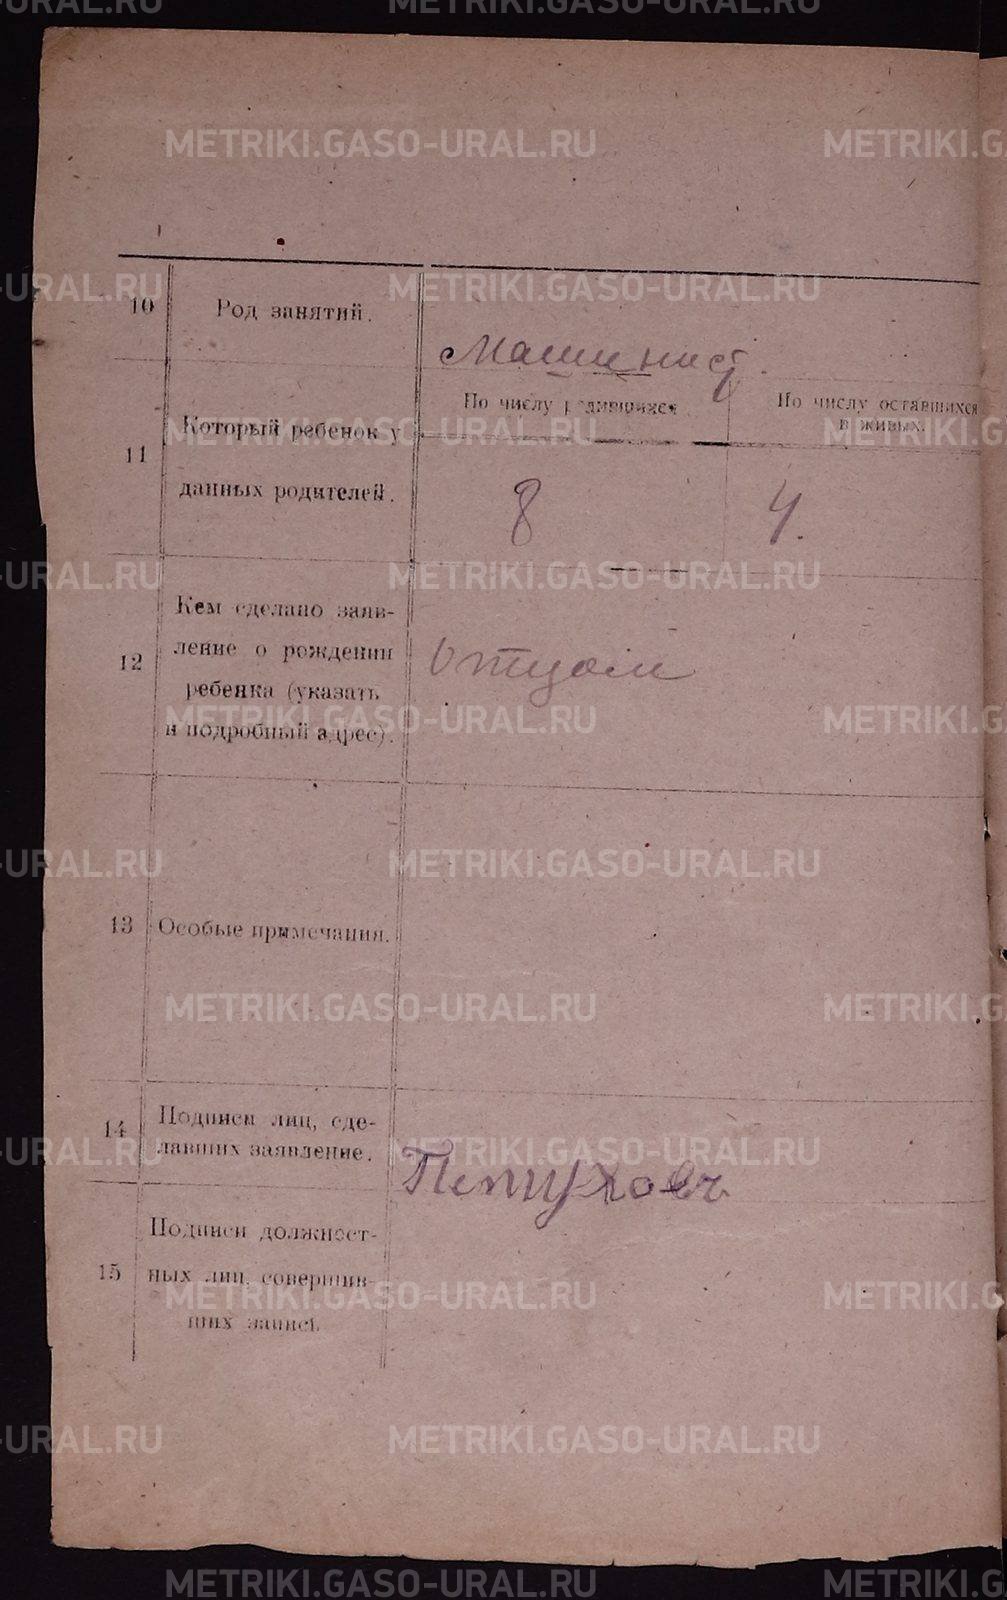 10 Род занятий. Машинист.
11 Который ребенок у
данных родителей.
По числу родившихся По числу оставшихся
в живых.
8 4.
12 Кем сделано заяв-
ление о рождении
ребенка (указать
и подробный адрес).
Отцом
13 Особые примечания.
14 Подписи лиц, сде-
лавших заявление.
Петуховъ
15 Подписи должност-
ных лиц, совершив-
ших запись.
METRIKI.GASO-URAL.RU